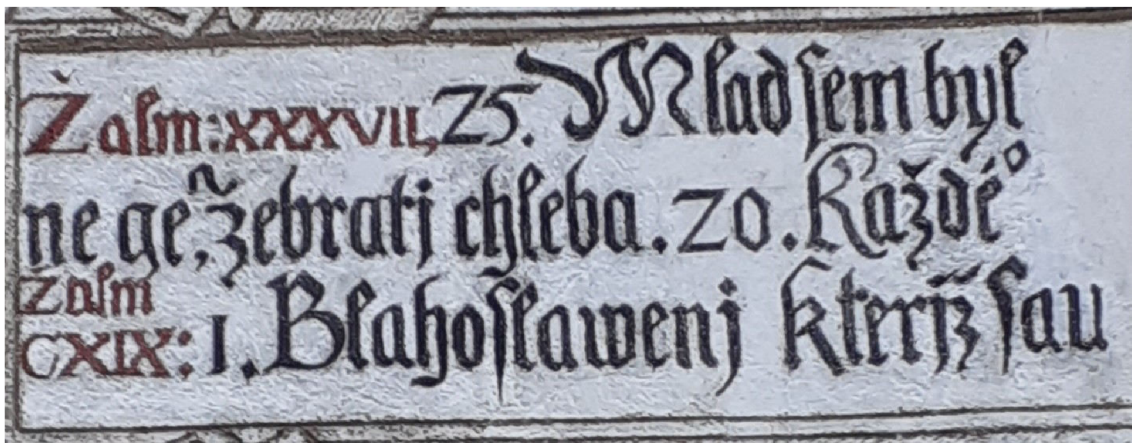 Žalm: XXXVII, 25. Mlad sem byl
ne ge~, žebratj chleba. 20. Každé°
Zalm
CXIX: 1. Blahoslawenj kterjž sau